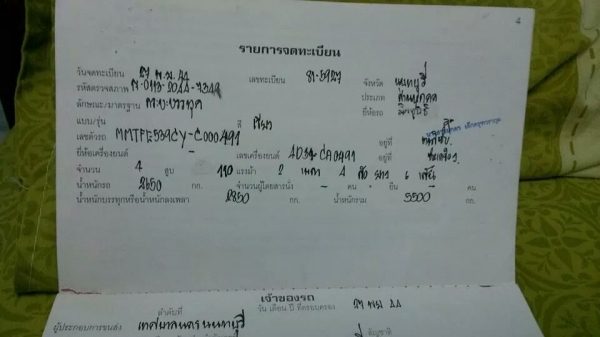 4
รายการจดทะเบียน
วันจดทะเบียน 27 พ.ย. 44 เลขทะเบียน 81-5927 จังหวัด นนทบุรี
รหัสตรวจสภาพ
ลักษณะ/มาตรฐาน ประเภท ส่วนบุคคล
แบบ/รุ่น สี เขียว ยี่ห้อรถ มิตซูบิชิ
เลขตัวรถ MMTFE539CY-C000491 อยู่ที่
ยี่ห้อเครื่องยนต์ เลขเครื่องยนต์ 4D34-CA0491 อยู่ที่
จำนวน 4 สูบ 110 แรงม้า 2 เพลา 4 ล้อ ยาง 6 เส้น
น้ำหนักรถ 2650 กก. จำนวนผู้โดยสารนั่ง - คน ยืน - คน
น้ำหนักบรรทุกหรือน้ำหนักลงเพลา 2850 กก. น้ำหนักรวม 5500 กก.
เจ้าของรถ
ลำดับที่ วัน เดือน ปี ที่ครอบครอง 27 พย 44
ผู้ประกอบการขนส่ง เทศบาลนครนนทบุรี สัญชาติ